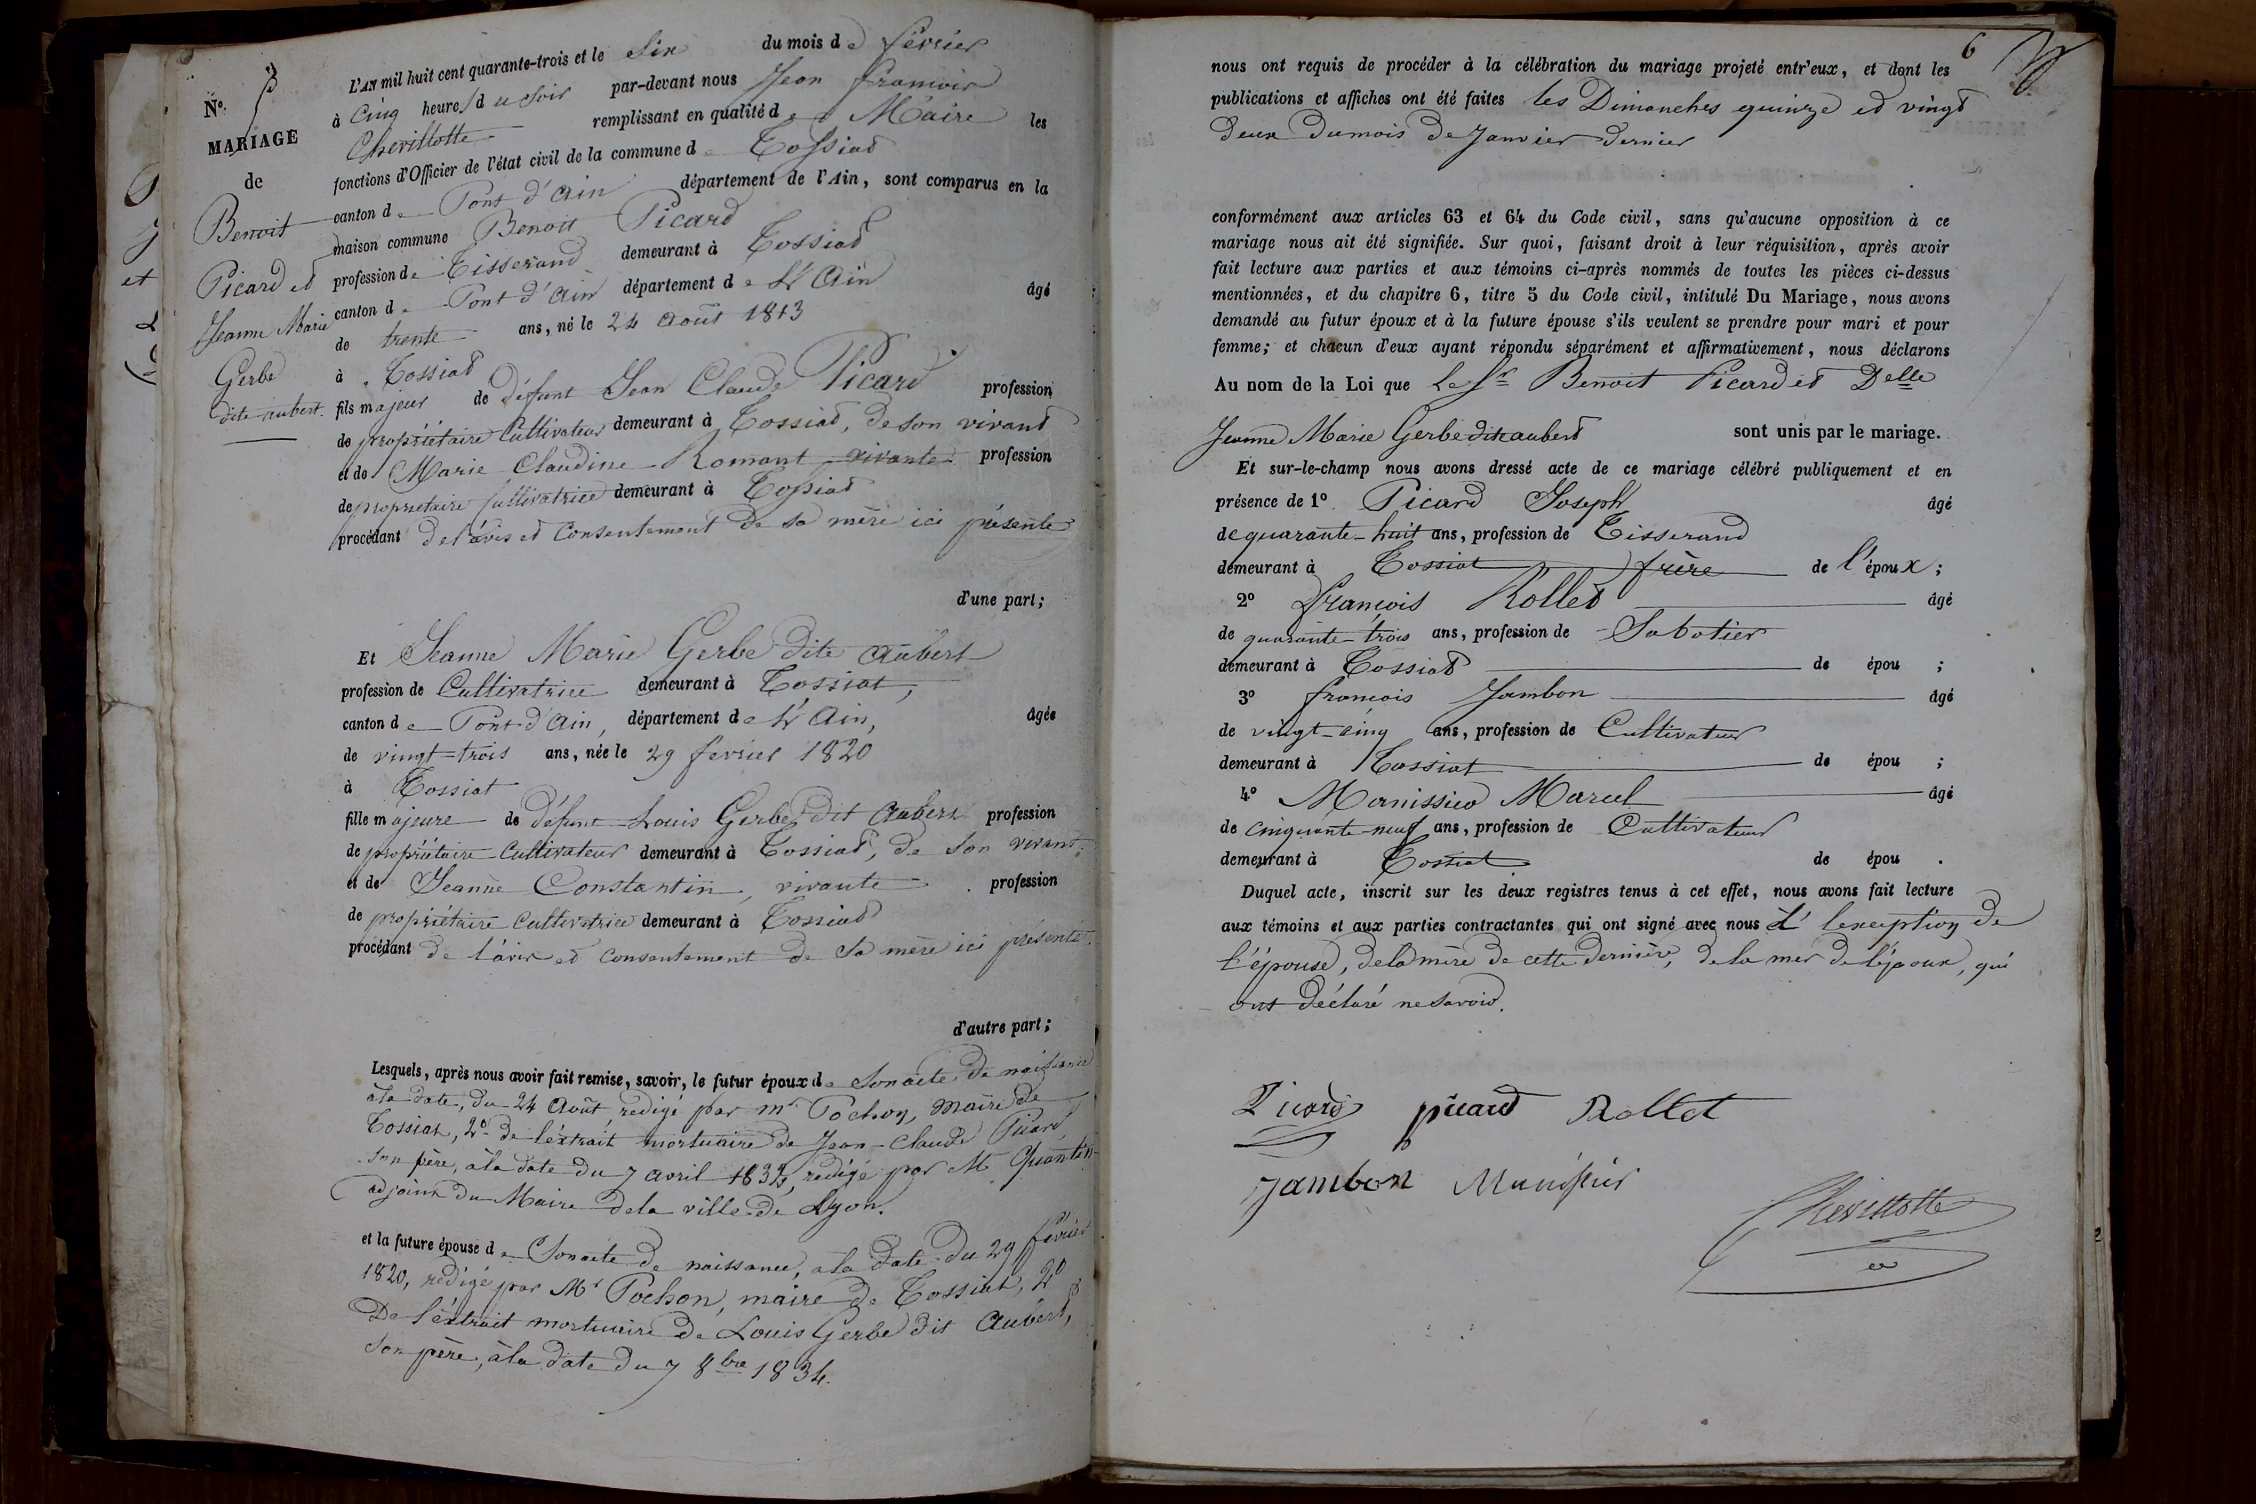 N°. 5
MARIAGE
de
Benoit
Picard et
Jeanne Marie
Gerbe
dite aubert.
L'AN mil huit cent quarante-trois et le Six du mois de février
à Cinq heures du soir par-devant nous Jean françois
Chevillotte remplissant en qualité de Maire les
fonctions d'Officier de l'état civil de la commune de Tossiat
canton de Pont d'ain département de l'Ain, sont comparus en la
maison commune Benoit Picard
profession de Tisserand demeurant à Tossiat
canton de Pont d'ain département de L'Ain âgé
de trente ans, né le 24 août 1813
à Tossiat
fils majeur de Défunt Jean Claude Picard profession
de propriétaire Cultivateur demeurant à Tossiat, de son vivant
et de Marie Claudine Romant vivante profession
de propriétaire Cultivatrice demeurant à Tossiat
procédant de l'avis et Consentement de sa mère ici présente
d'une part;
Et Jeanne Marie Gerbe dite aubert
profession de Cultivatrice demeurant à Tossiat,
canton de Pont d'ain, département de L'Ain, âgée
de vingt-trois ans, née le 29 février 1820
à Tossiat
fille majeure de défunt Louis Gerbe dit aubert profession
de propriétaire Cultivateur demeurant à Tossiat, de Son vivant
et de Jeanne Constantin, vivante profession
de propriétaire Cultivatrice demeurant à Tossiat
procédant de l'avis et consentement de sa mère ici présente.
d'autre part;
Lesquels, après nous avoir fait remise, savoir, le futur époux de Son acte de naissance
à la date, du 24 Août rédigé par mr. Pochon, maire de
Tossiat, 2° de l'éxtrait mortuaire de Jean-Claude Picard
son père, à la date du 7 avril 1834, rédigé par Mr
adjoint du Maire de la ville de Lyon.
et la future épouse de Son acte de naissance, à la date du 29 février
1820, rédigé par Mr Pochon, maire de Tossiat, 2°
De l'éxtrait mortuaire de Louis Gerbe dit Aubert,
Son père, à la date du 7 8bre 1834.
6
nous ont requis de procéder à la célébration du mariage projeté entr'eux, et dont les
publications et affiches ont été faites les Dimanches quinze et vingt
deux du mois de Janvier dernier
conformément aux articles 63 et 64 du Code civil, sans qu'aucune opposition à ce
mariage nous ait été signifiée. Sur quoi, faisant droit à leur réquisition, après avoir
fait lecture aux parties et aux témoins ci-après nommés de toutes les pièces ci-dessus
mentionnées, et du chapitre 6, titre 5 du Code civil, intitulé Du Mariage, nous avons
demandé au futur époux et à la future épouse s'ils veulent se prendre pour mari et pour
femme; et chacun d'eux ayant répondu séparément et affirmativement, nous déclarons
Au nom de la Loi que Le Sr Benoit Picard et Delle
Jeanne Marie Gerbe dite aubert sont unis par le mariage.
Et sur-le-champ nous avons dressé acte de ce mariage célébré publiquement et en
présence de 1° Picard Joseph âgé
de quarante-huit ans, profession de Tisserand
demeurant à Tossiat frère de l'époux ;
2° françois Rollet âgé
de quarante-trois ans, profession de Sabotier
demeurant à Tossiat de épou ;
3° françois Jambon âgé
de vingt-cinq ans, profession de Cultivateur
demeurant à Tossiat de épou ;
4° Marcel âgé
de cinquante-neuf ans, profession de Cultivateur
demeurant à Tossiat de épou .
Duquel acte, inscrit sur les deux registres tenus à cet effet, nous avons fait lecture
aux témoins et aux parties contractantes qui ont signé avec nous à l'exception de
l'épouse, de la mère de cette dernière, de la mère de l'époux, qui
ont déclaré ne savoir.
Picard picard Rollet
Jambon
Chevillotte